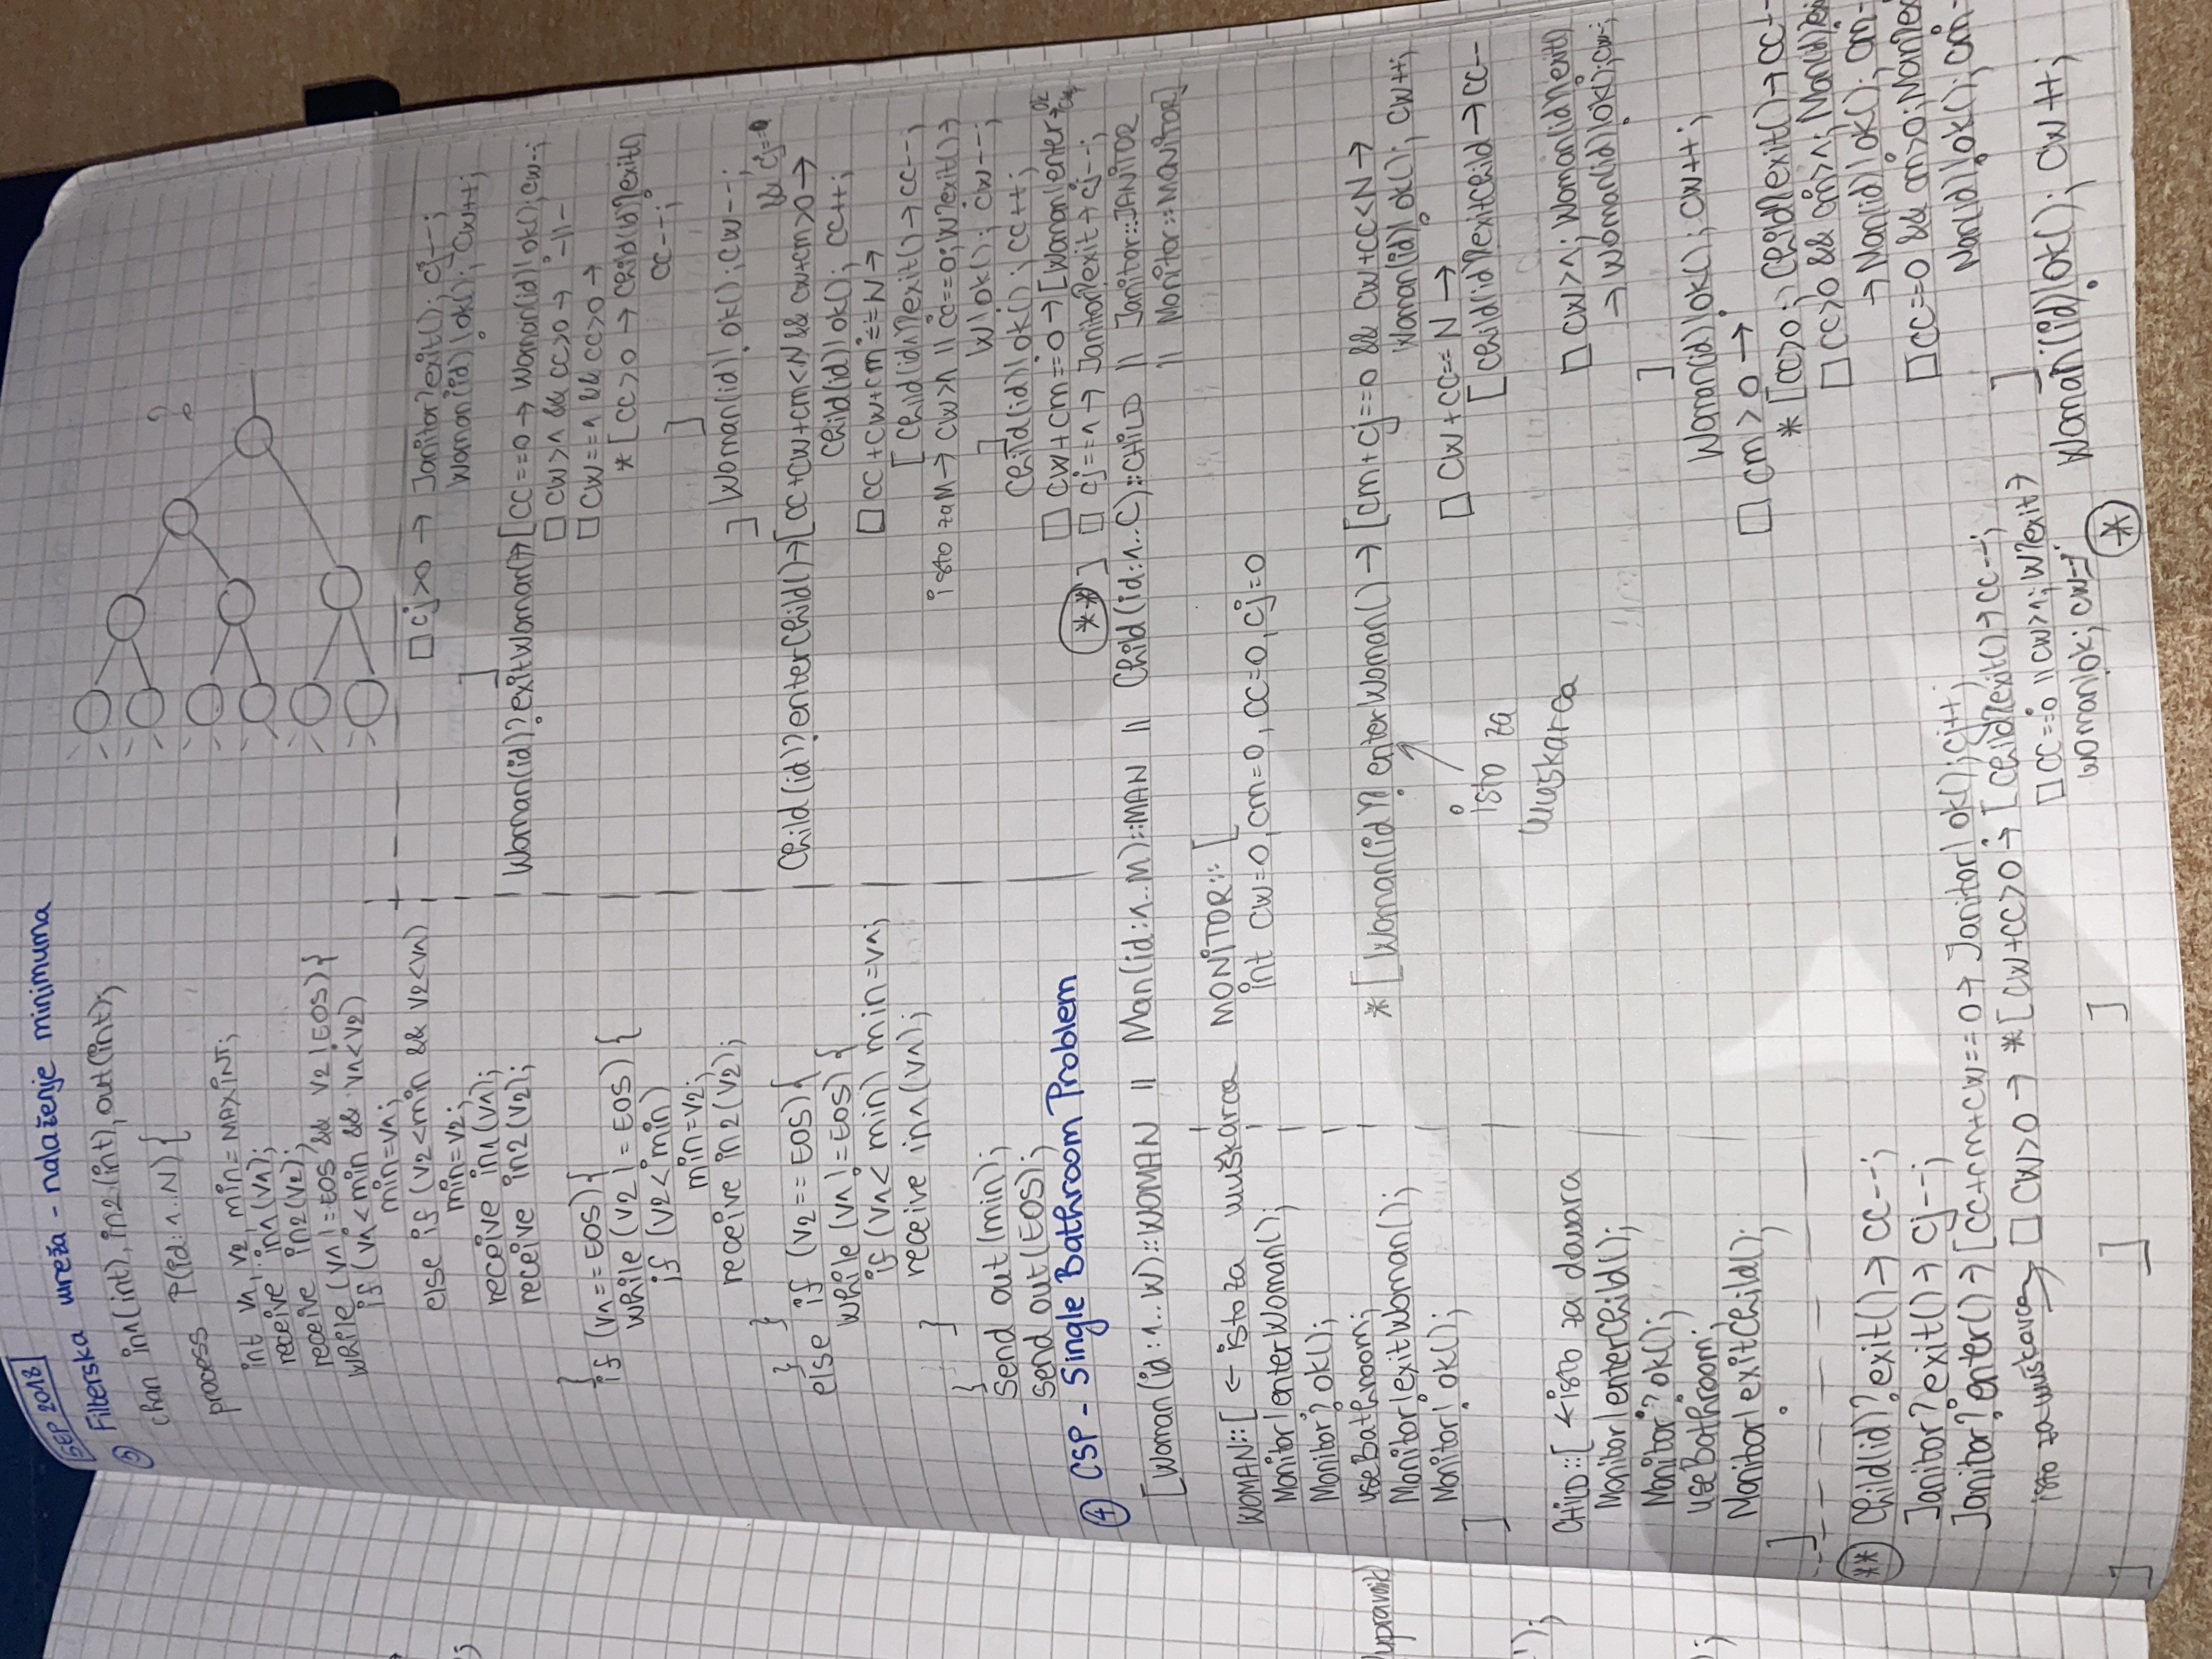 SEP 2018
⑤ Filterska mreža - nalaženje minimuma
chan in1(int), in2(int), out(int);
process P(id:1..N){
int v1, v2, min=MAXINT;
receive in1(v1);
receive in2(v2);
while (v1 != EOS && v2 ! EOS){
if (v1<min && v1<v2)
min=v1;
else if (v2<min && v2<v1)
min=v2;
receive in1(v1);
receive in2(v2);
}
if (v1==EOS){
while (v2 != EOS){
if (v2<min)
min=v2;
receive in2(v2);
}
}
else if (v2==EOS){
while (v1 != EOS){
if (v1<min) min=v1;
receive in1(v1);
}
}
send out(min);
send out(EOS);
?
□ cj>0 → Janitor?exit(); cj--;
Woman(id)!ok(); cw++;
]
Woman(id)?exitWoman()→[cc==0→Woman(id)!ok();cw--;
□ cw>1 && cc>0 → -||-
□ cw==1 && cc>0 →
*[cc>0 → Child(id)?exit()
cc--;
]
] Woman(id)!ok();cw--;
&& cj==0
Child(id)?enterChild()→[cc+cw+cm<N && cw+cm>0→
Child(id)!ok(); cc++;
□ cc+cw+cm==N→
[Child(id1)?exit()→cc--;
isto za M→ cw>1 || cc==0;W?exit()→
] W!ok(); cw--;
Child(id)!ok(); cc++;
□ cw+cm==0→[Woman!enter→ok
** ] □ cj==1→Janitor?exit→cj--;
④ CSP - Single Bathroom Problem
[Woman(id:1..W)::WOMAN || Man(id:1..M)::MAN || Child(id:1..C)::CHILD || Janitor::JANITOR
|| Monitor::MONITOR]
WOMAN::[ ← isto za muškarca
Monitor!enterWoman();
Monitor?ok();
useBathroom;
Monitor!exitWoman();
Monitor!ok();
]
CHILD::[ ←isto za domara
Monitor!enterChild();
Monitor?ok();
useBathroom;
Monitor!exitChild();
]
MONITOR::[
int cw=0,cm=0,cc=0,cj=0
*[Woman(id)?enterWoman()→[cm+cj==0 && cw+cc<N→
Woman(id)!ok(); cw++;
isto za
muškarca
□ cw+cc==N →
[Child(id)?exitChild→cc--
□ cw>1; Woman(id)?exit()
→Woman(id)!ok();cw--;
]
Woman(id)!ok(); cw++;
□ cm>0→
*[cc>0; Child?exit()→cc--
□ cc>0 && cm>1; Man(id)?ex
→Man(id)!ok(); cm-
□ cc==0 && cm>0;Man?ex
Man(id)!ok(); cm-
]
Woman(id)!ok(); cw++;
*
** Child(id)?exit()→cc--;
Janitor?exit()→cj--;
Janitor?enter()→[cc+cm+cw==0→Janitor!ok();cj++;
isto za muškarca → □ cw>0 → *[cw+cc>0→[Child?exit()→cc--;
□ cc==0 || cw>1; W?exit→
woman!ok; cw--
] ] ]
upravnik)